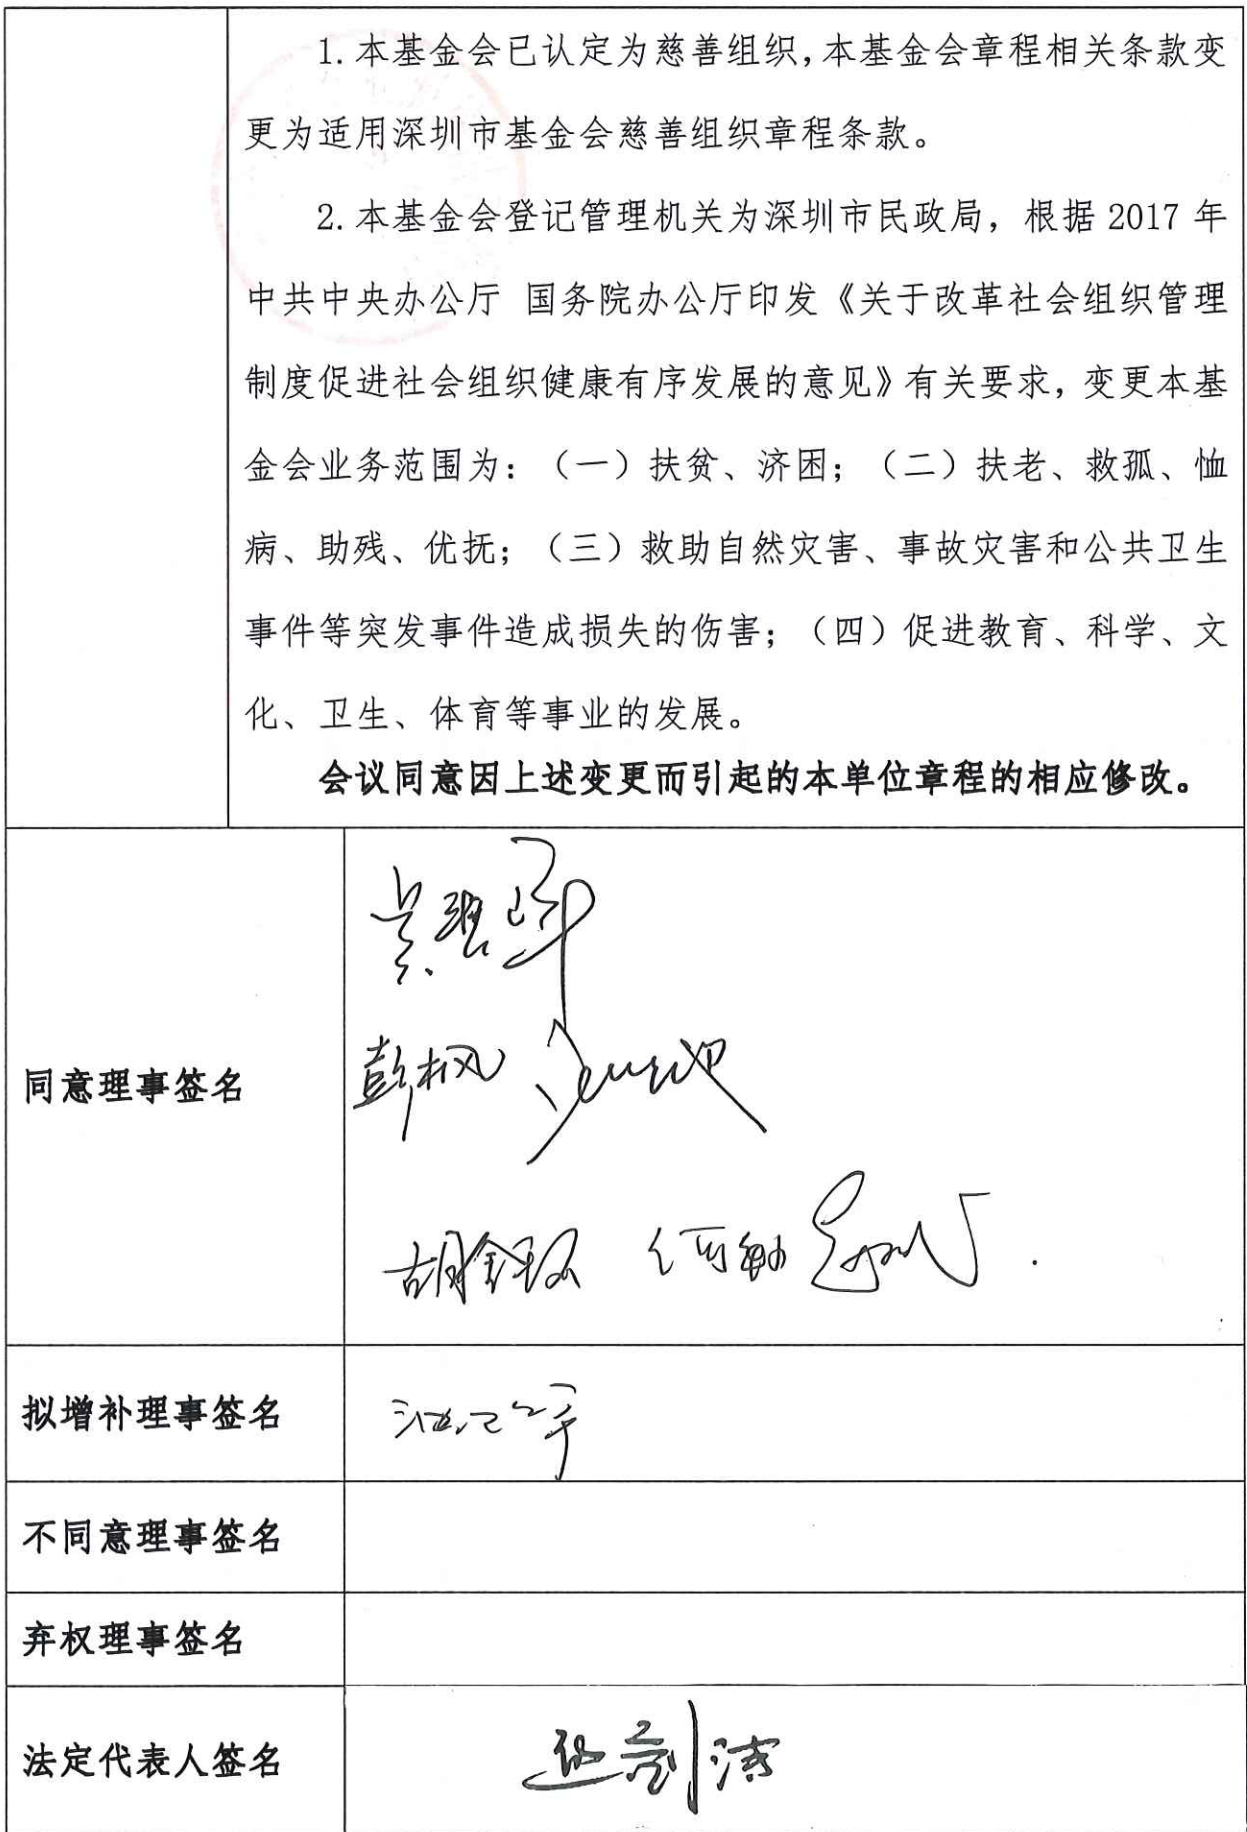 1.本基金会已认定为慈善组织,本基金会章程相关条款变
更为适用深圳市基金会慈善组织章程条款。
2.本基金会登记管理机关为深圳市民政局，根据 2017 年
中共中央办公厅 国务院办公厅印发《关于改革社会组织管理
制度促进社会组织健康有序发展的意见》有关要求，变更本基
金会业务范围为：（一）扶贫、济困；（二）扶老、救孤、恤
病、助残、优抚；（三）救助自然灾害、事故灾害和公共卫生
事件等突发事件造成损失的伤害；（四）促进教育、科学、文
化、卫生、体育等事业的发展。
会议同意因上述变更而引起的本单位章程的相应修改。
同意理事签名
彭枫
胡 何敏
拟增补理事签名
不同意理事签名
弃权理事签名
法定代表人签名